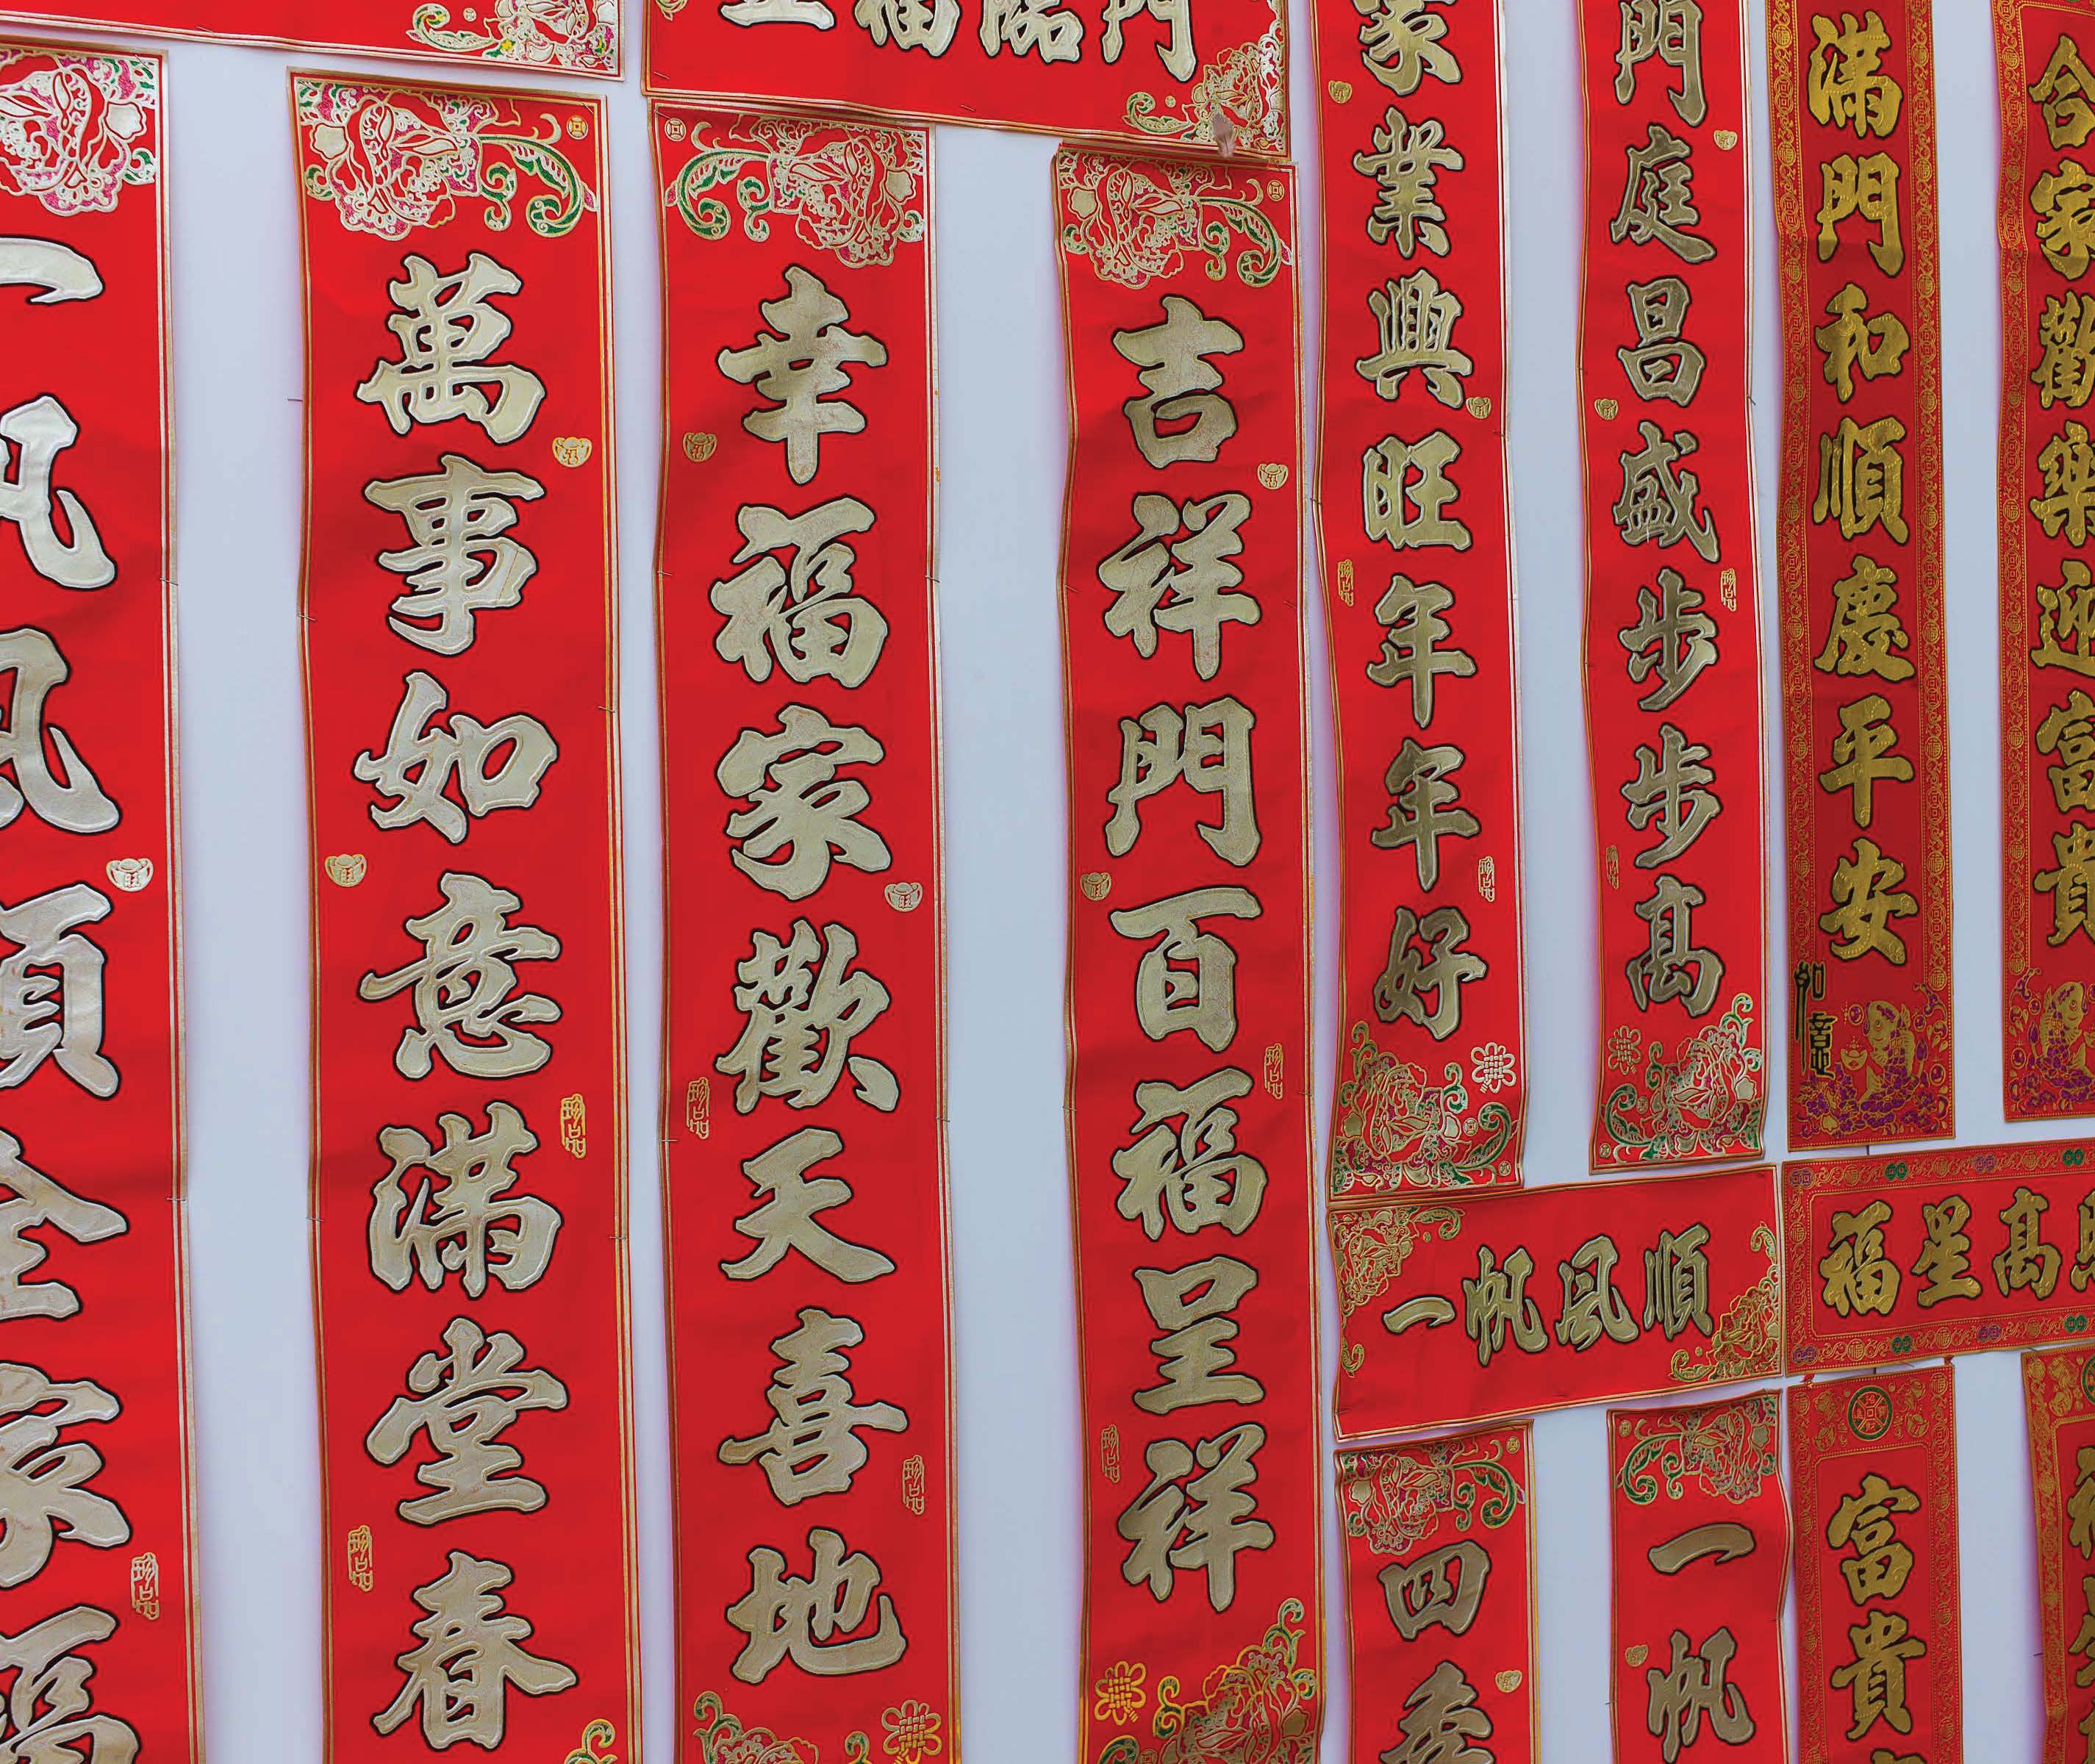 五福臨門
一帆風順全家福
萬事如意滿堂春
幸福家歡天喜地
吉祥門百福呈祥
家業興旺年年好
門庭昌盛步步高
滿門和順慶平安
如意
合家歡樂迎富貴
一帆風順
福星高照
四季
一帆
富貴